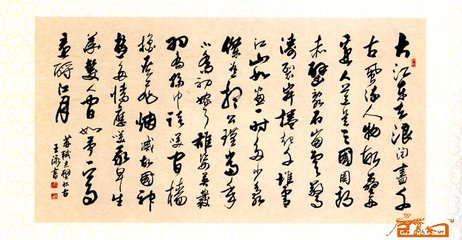 大江东去浪淘盡千
古風流人物故壘
西人道是三國周郎
赤壁亂石崩雲驚
濤裂岸捲起千堆雪
江山如畫一時多少豪
傑遥想公瑾當年
小喬初嫁了雄姿英發
羽扇綸巾談笑间檣
櫓灰飛烟滅故國神
遊多情應笑我早生
華髮人间如夢一尊
還酹江月
蘇軾赤壁怀古